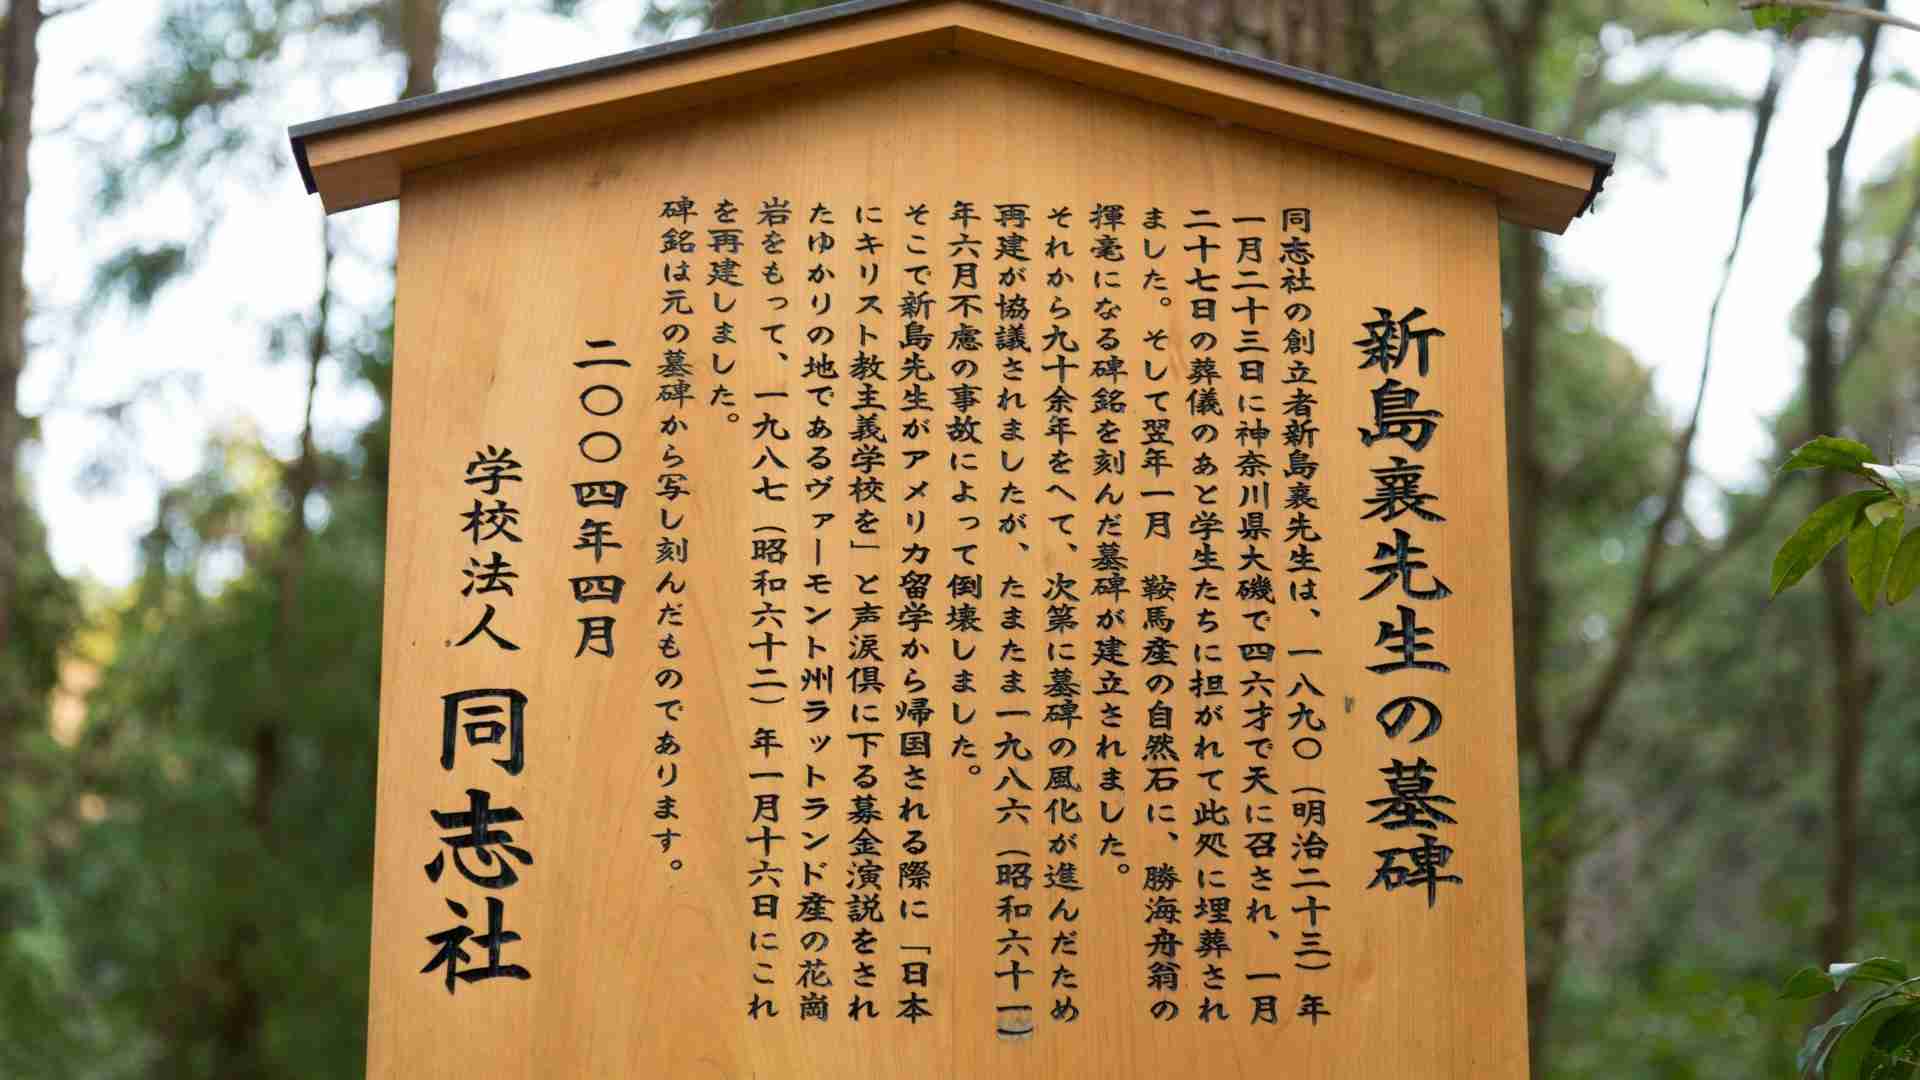 新島襄先生の墓碑
同志社の創立者新島襄先生は、一八九〇(明治二十三)年
一月二十三日に神奈川県大磯で四六才で天に召され、一月
二十七日の葬儀のあと学生たちに担がれて此処に埋葬され
ました。そして翌年一月　鞍馬産の自然石に、勝海舟翁の
揮毫になる碑銘を刻んだ墓碑が建立されました。
それから九十余年をへて、次第に墓碑の風化が進んだため
再建が協議されましたが、たまたま一九八六(昭和六十一)
年六月不慮の事故によって倒壊しました。
そこで新島先生がアメリカ留学から帰国される際に「日本
にキリスト教主義学校を」と声涙倶に下る募金演説をされ
たゆかりの地であるヴァーモント州ラットランド産の花崗
岩をもって、一九八七(昭和六十二)年一月十六日にこれ
を再建しました。
碑銘は元の墓碑から写し刻んだものであります。
二〇〇四年四月
学校法人 同志社